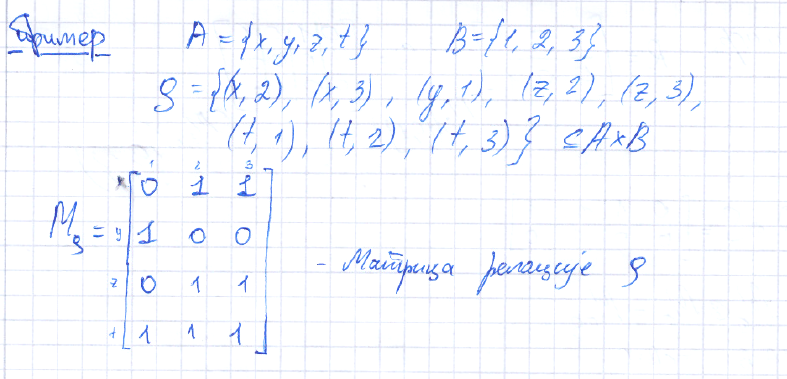 Пример A = {x, y, z, t} B = {1, 2, 3}
ρ = {(x, 2), (x, 3), (y, 1), (z, 2), (z, 3),
(t, 1), (t, 2), (t, 3)} ⊆ A×B
1 2 3
x 0 1 1
M_ρ = y 1 0 0
z 0 1 1 - Матрица релације ρ
t 1 1 1